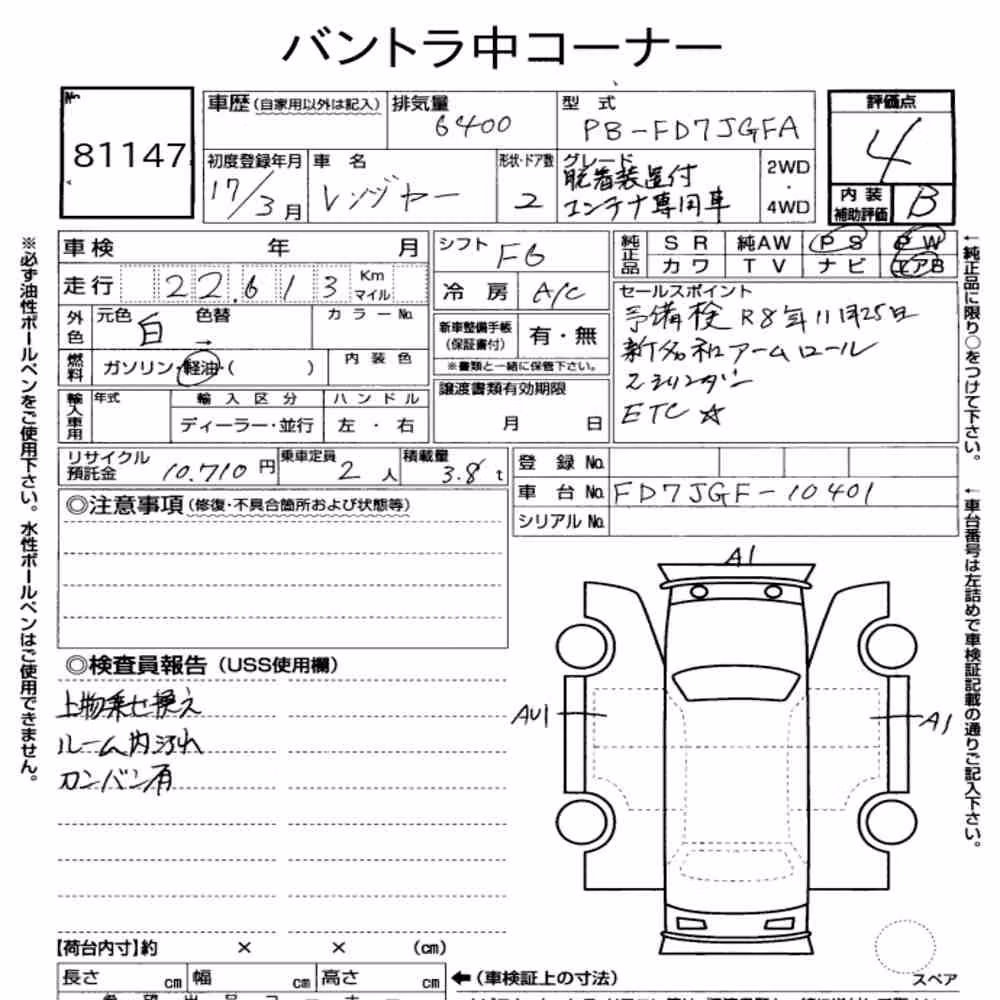 バントラ中コーナー
No.
81147
車歴(自家用以外は記入)
排気量
6400
型式
PB-FD7JGFA
評価点
4
初度登録年月
17/3月
車名
レンジャー
形状・ドア数
2
グレード
脱着装置付
コンテナ専用車
2WD
・
4WD
内装
補助評価
B
車検 年 月
シフト F6
純正品
SR 純AW PS PW
カワ TV ナビ エアB
走行 22.613 Km マイル
冷房 A/C
セールスポイント
予備検 R8年11月25日
新明和アームロール
ETC ☆
外色
元色 白 → 色替
カラーNo.
新車整備手帳
(保証書付)
有・無
※書類と一緒に保管下さい。
燃料
ガソリン・軽油・( )
内装色
譲渡書類有効期限
月 日
輸入車用
年式
輸入区分
ハンドル
ディーラー・並行
左・右
リサイクル
預託金
10.710円
乗車定員
2人
積載量
3.8t
登録No.
車台No. FD7JGF-10401
シリアルNo.
◎注意事項(修復・不具合箇所および状態等)
◎検査員報告(USS使用欄)
上物乗せ換え
ルーム内汚れ
カンバン有
A1
AU1
A1
スペア
【荷台内寸】約 × × (cm)
長さ cm 幅 cm 高さ cm
←(車検証上の寸法)
※必ず油性ボールペンをご使用下さい。水性ボールペンはご使用できません。
←純正品に限り○をつけて下さい。
←車台番号は左詰めで車検証記載の通りご記入下さい。